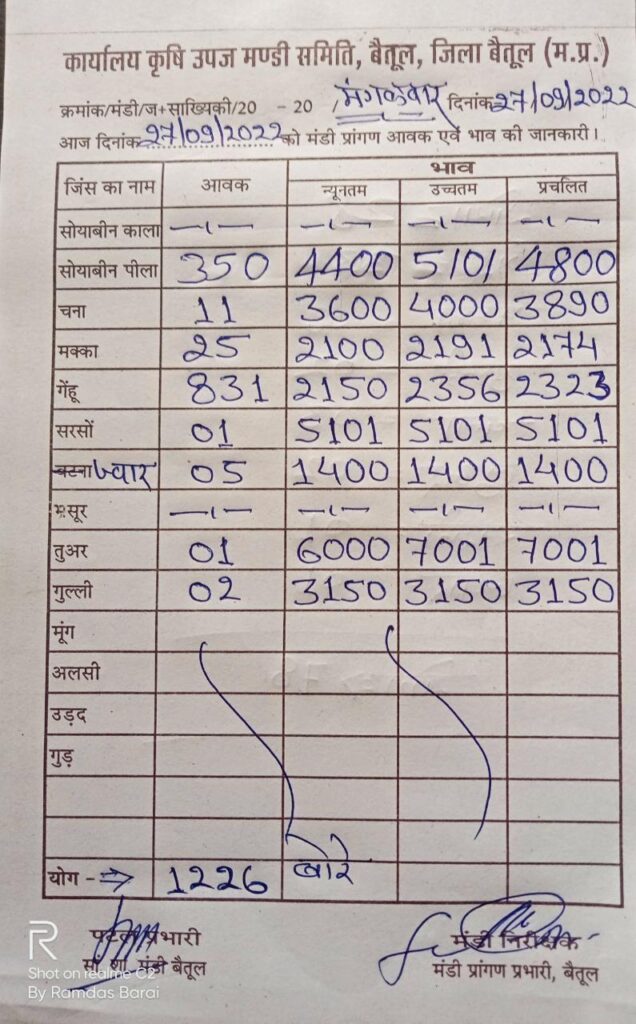 कार्यालय कृषि उपज मण्डी समिति, बैतूल, जिला बैतूल (म.प्र.)
क्रमांक/मंडी/ज+साख्यिकी/20 - 20 , मंगलवार दिनांक 27/09/2022
आज दिनांक 27/09/2022 को मंडी प्रांगण आवक एवं भाव की जानकारी।
भाव
जिंस का नाम आवक न्यूनतम उच्चतम प्रचलित
सोयाबीन काला —।— —।— —।— —।—
सोयाबीन पीला 350 4400 5101 4800
चना 11 3600 4000 3890
मक्का 25 2100 2191 2174
गेंहू 831 2150 2356 2323
सरसों 01 5101 5101 5101
बटना ज्वार 05 1400 1400 1400
मसूर —।— —।— —।— —।—
तुअर 01 6000 7001 7001
गुल्ली 02 3150 3150 3150
मूंग
अलसी
उड़द
गुड़
योग -⇒ 1226 बोरे
प्रभारी मंडी निरीक्षक
मंडी बैतूल मंडी प्रांगण प्रभारी, बैतूल
R
Shot on realme C2
By Ramdas Barai